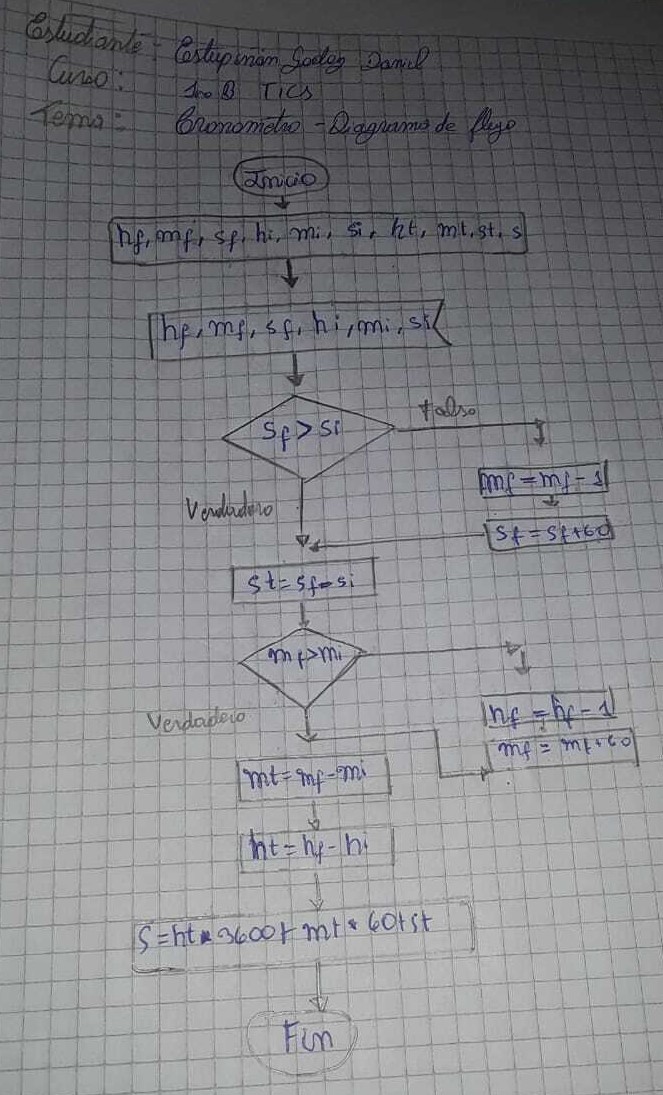 Estudiante - Estupinán Godoy Daniel
Curso: 1ro B TICS
Tema: Cronometro - Diagrama de flujo
Inicio
hf, mf, sf, hi, mi, si, ht, mt, st, s
hf, mf, sf, hi, mi, si
Sf > Si
falso
mf = mf - 1
Verdadero
Sf = Sf + 60
St = Sf - si
mf > mi
Verdadero
hf = hf - 1
mf = mf + 60
mt = mf - mi
ht = hf - hi
S = ht * 3600 + mt * 60 + st
Fin